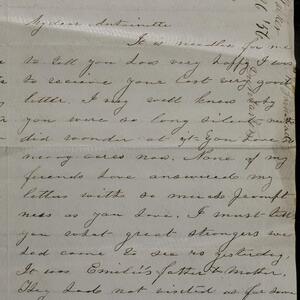 My dear Antoinette
It is needless for me
to tell you how very happy I was
to receive your last very good
letter. I may well know why
you were so long silent
did wonder at it. You have
many cares now. None of my
friends have answered my
letters with so much prompt
ness as you have. I must tell
you what great strangers we
had come to see us yesterday.
It was Emilie's father & mother.
They had not visited us for some